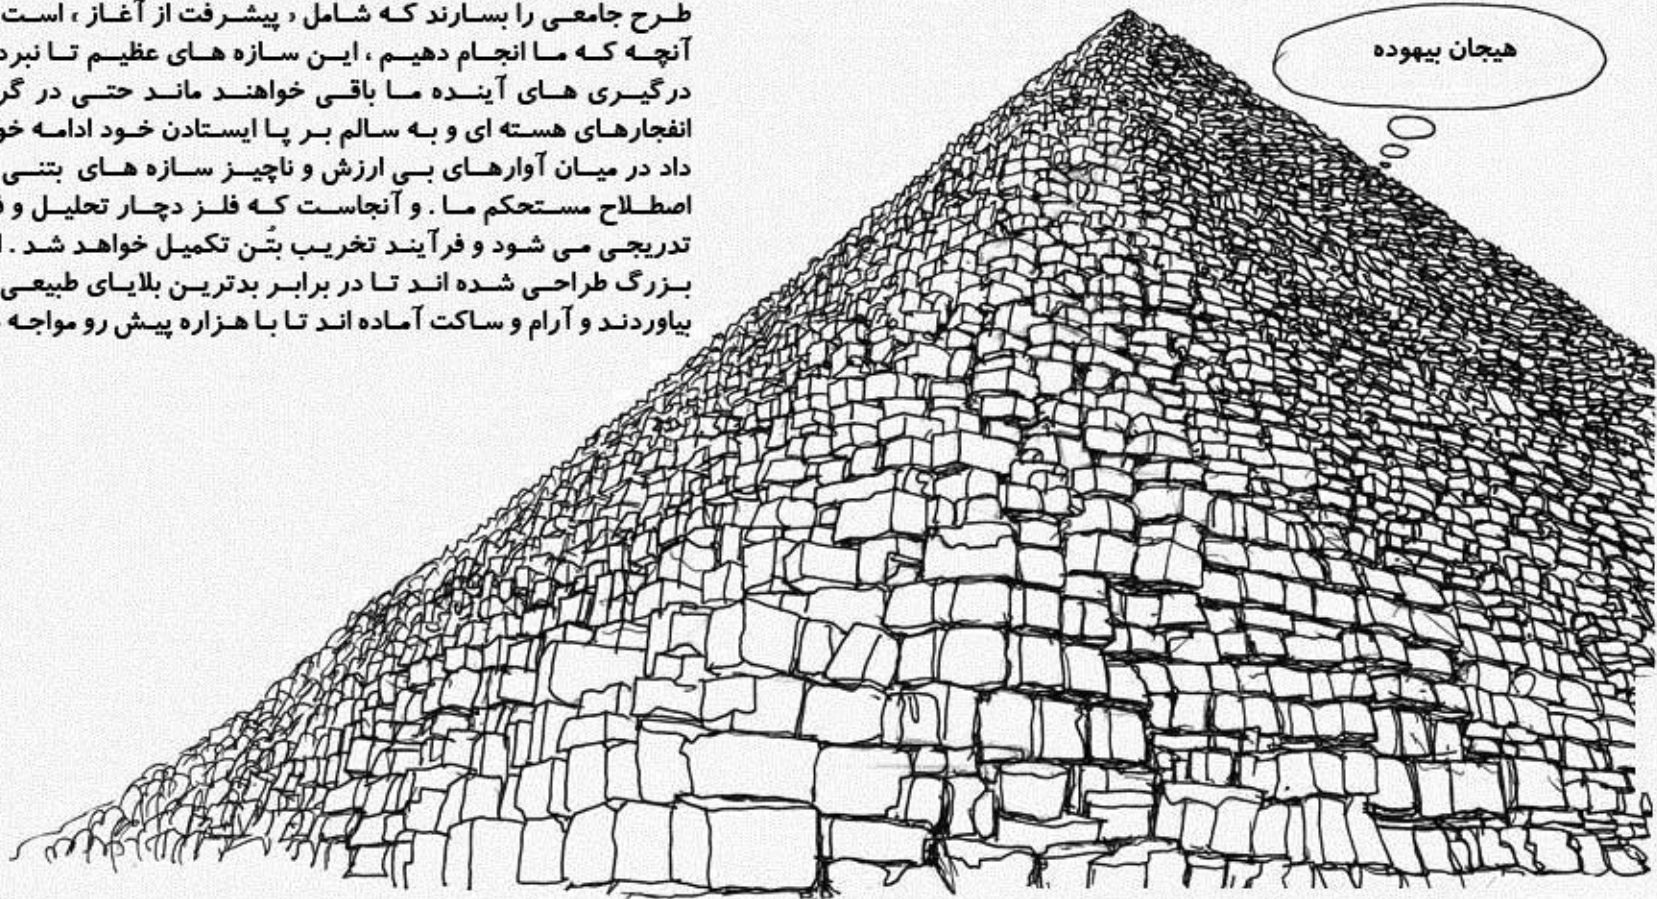 طرح جامعی را بسازند که شامل « پیشرفت از آغاز » است
آنچه که ما انجام دهیم ، این سازه های عظیم تا نبرد
درگیری های آینده ما باقی خواهند ماند حتی در
انفجارهای هسته ای و به سالم بر پا ایستادن خود ادامه
داد در میان آوارهای بی ارزش و ناچیز سازه های بتنی
اصطلاح مستحکم ما . و آنجاست که فلز دچار تحلیل و
تدریجی می شود و فرآیند تخریب بتُن تکمیل خواهد شد .
بزرگ طراحی شده اند تا در برابر بدترین بلایای طبیعی
بیاوردند و آرام و ساکت آماده اند تا با هزاره پیش رو مواجه
هیجان بیهوده